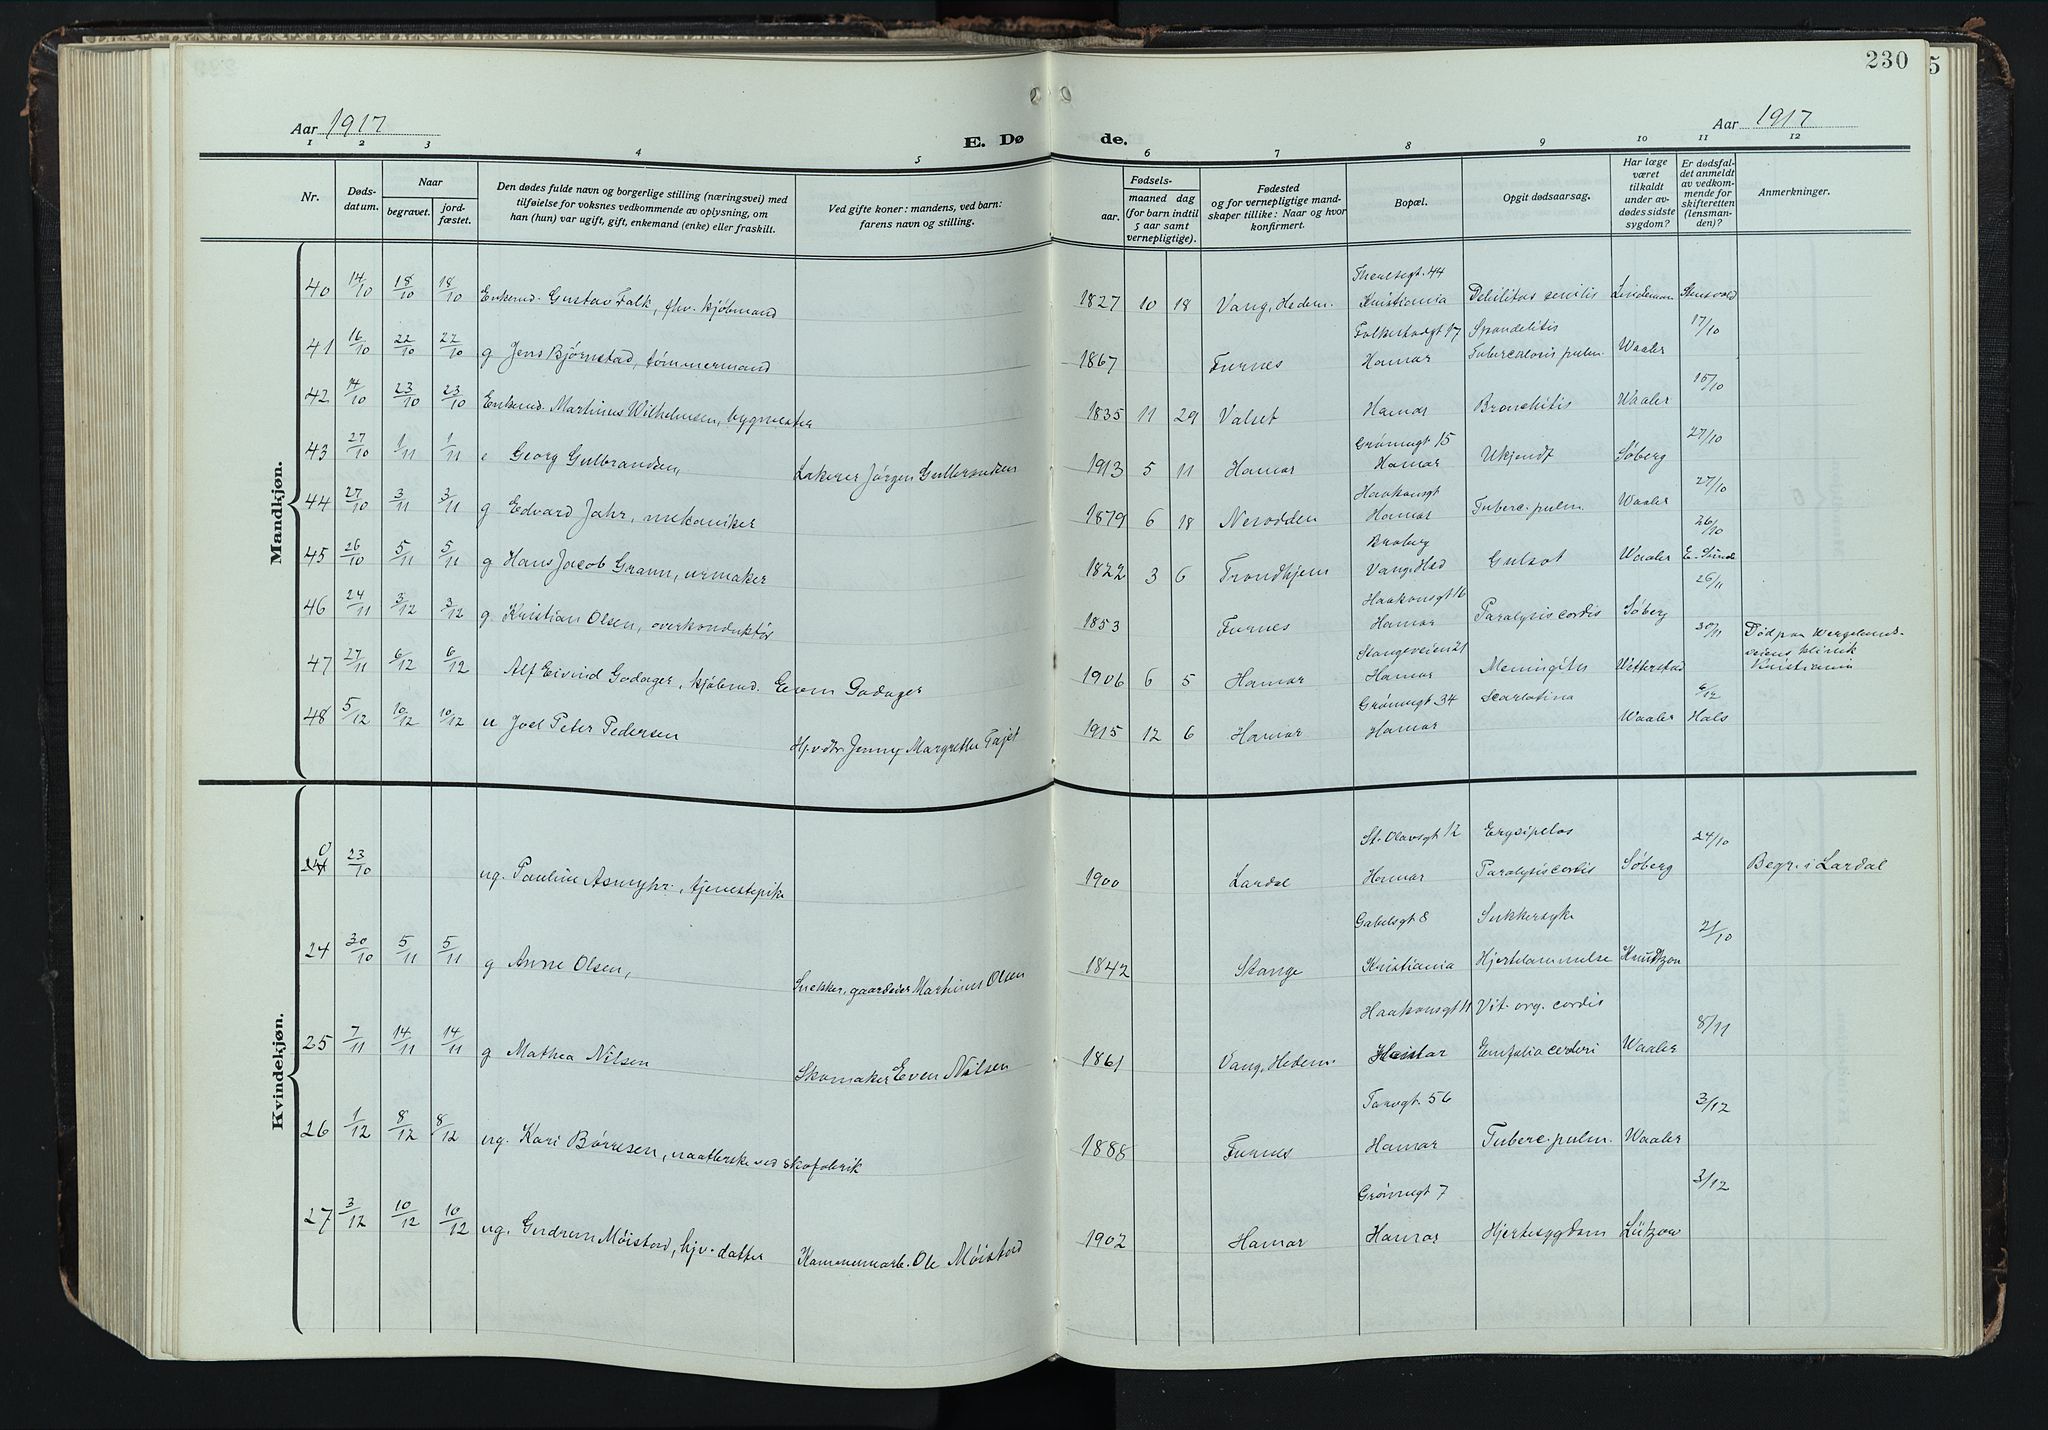 230
5
Aar 1917
Aar 1917
E. Dø de.
1 2 3 4 5 6 7 8 9 10 11 12
Nr.
Døds-
datum.
Naar
begravet.
jord-
fæstet.
Den dødes fulde navn og borgerlige stilling (næringsvei) med
tilføielse for voksnes vedkommende av oplysning, om
han (hun) var ugift, gift, enkemand (enke) eller fraskilt.
Ved gifte koner: mandens, ved barn:
farens navn og stilling.
Fødsels-
aar.
maaned dag
(for barn indtil
5 aar samt
vernepligtige).
Fødested
og for vernepligtige mand-
skaper tillike: Naar og hvor
konfirmert.
Bopæl.
Opgit dødsaarsag.
Har læge
været
tilkaldt
under av-
dødes sidste
sygdom?
Er dødsfal-
det anmeldt
av vedkom-
mende for
skifteretten
(lensman-
den)?
Anmerkninger.
Mandkjøn.
Theresegt. 44
40 14/10 18/10 18/10 Enkemd. Gustav Falk, fhv. kjøbmand 1827 10 18 Vang, Hedem. Kristiania Debilitas senilis Lindeman Stensvold
Folkestadgt 17 Spondelitis 17/10
41 16/10 22/10 22/10 g Jens Bjørnstad, tømmermand 1867 Furnes Hamar Tuberculosis pulm. Waaler
15/10
42 14/10 23/10 23/10 Enkemd. Martinus Wilhelmsen, bygmester 1835 11 29 Valset Hamar Bronchitis Waaler
Grønnegt 15 27/10
43 27/10 1/11 1/11 Georg Gulbrandsen, Lakerer Jørgen Gulbrandsen 1913 5 11 Hamar Hamar Ukjendt Søberg
Haakonsgt 27/10
44 27/10 3/11 3/11 g Edvard Jahr, mekaniker 1879 6 18 Nesodden Hamar Tuberc. pulm. Waaler
Broberg 26/10
45 26/10 5/11 5/11 g Hans Jacob Grann, urmaker 1822 3 6 Trondhjem Vang, Hed Gulsot Waaler E. Sunde
Haakonsgt 16 26/11
46 24/11 3/12 3/12 g. Kristian Olsen, overkonduktør 1853 Furnes Hamar Paralysis cordis Søberg
Stangeveien 21 30/11 Død paa Wergelands-
veiens klinik
47 27/11 6/12 6/12 Alf Eivind Godager, kjøbmd. Even Godager 1906 6 5 Hamar Hamar Meningitis Wetterstad Kristiania
Grønnegt 34 Scarlatina 6/12
48 5/12 10/12 10/12 u Joel Peter Pedersen Hpvdtr. Jenny Margrethe Fajet 1915 12 6 Hamar Hamar Waaler Hals
Kvindekjøn.
St. Olavsgt 12 Erysipelas 24/10
23/10 ug. Pauline Asmyhr, tjenestepike 1900 Lardal Hamar Paralysis cordis Søberg Begr. i Lardal
Gabelsgt 8 Sukkersyke 21/10
24 30/10 5/11 5/11 g Anne Olsen, Snekker, gaardeier Martinus Olsen 1842 Stange Kristiania Hjertelammelse Knudtzon
Haakonsgt 11 Vit. org. cordis 8/11
25 7/11 14/11 14/11 g Mathea Nilsen Skomaker Even Nilsen 1861 Vang, Hedem. Hamar Emfolia cerebri Waaler
Torvgt. 56 3/12
26 1/12 8/12 8/12 ug. Kari Børresen, naatlerske ved skofabrik 1888 Furnes Hamar Tuberc. pulm. Waaler
Grønnegt 7 3/12
27 3/12 10/12 10/12 ug. Gudrun Møistad, hjv. datter Kommunearb. Ole Møistad 1902 Hamar Hamar Hjertesygdom Lützow